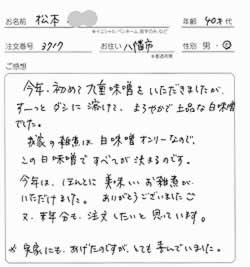 お名前 松本
※イニシャル・ペンネーム・匿名の方、など
年齢 40才代
注文番号 3717
お住い 八幡市
※都道府県
性別 男・女
ご感想
今年、初めて 九重味噌を いただきましたが、
すーっと ダシに 溶けて、 まろやかで 上品な 白味噌
でした。
お家の 雑煮は 白味噌 オンリーなので、
この 白味噌で すべてが 決まるのです。
今年は、ほんとに 美味しい お雑煮が
いただけました。 ありがとうございました
又、年末分も 注文したいと 思っています。
※ 実家にも、あげたのですが、とても 喜んでいました。